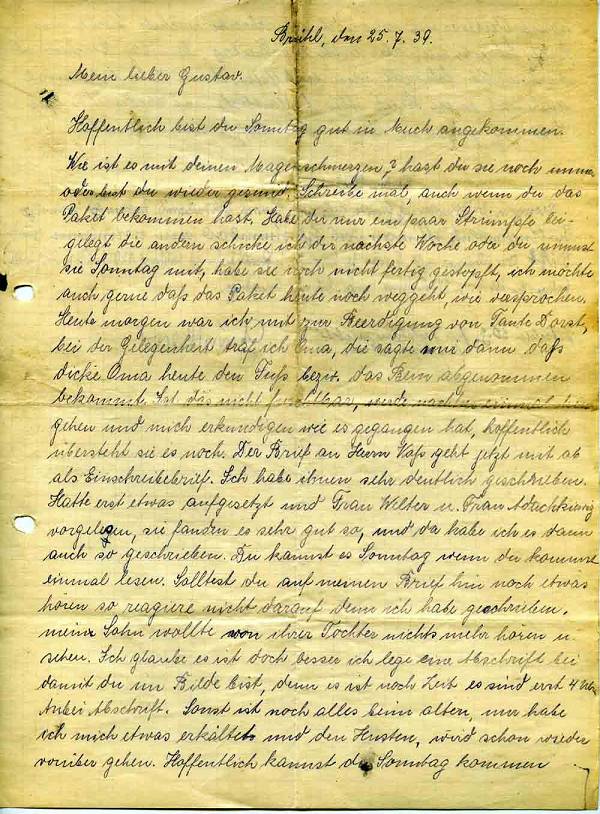 Brühl, den 25.7.39.
Mein lieber Gustav.
Hoffentlich bist du Sonntag gut in Much angekommen.
Wie ist es mit deinen Magenschmerzen, hast du sie noch immer
oder bist du wieder gesund. Schreibe mal, auch wenn du das
Paket bekommen hast. Habe dir nur ein paar Strümpfe bei-
gelegt die andern schicke ich dir nächste Woche oder du nimmst
sie Sonntag mit, habe sie noch nicht fertig gestopft, ich möchte
auch gerne daß das Paket heute noch weggeht, wie versprochen.
Heute morgen war ich mit zur Beerdigung von Tante Dorst,
bei der Gelegenheit traf ich Oma, die sagte mir dann daß
dicke Oma heute den Fuß bezw. das Bein abgenommen
bekommt. Ist das nicht furchtbar, werde nachher einmal hin
gehen und mich erkundigen wie es gegangen hat, hoffentlich
übersteht sie es noch. Der Brief an Herrn Vaß geht jetzt mit ab
als Einschreibebrief. Ich habe ihnen sehr deutlich geschrieben.
Hatte erst etwas aufgesetzt und Frau Welter u. Frau
vorgelegen, sie fanden es sehr gut so, und da habe ich es dann
auch so geschrieben. Du kannst es Sonntag wenn du kommst
einmal lesen. Solltest du auf meinen Brief hin noch etwas
hören so reagiere nicht darauf denn ich habe geschrieben,
mein Sohn wollte von ihrer Tochter nichts mehr hören u.
sehen. Ich glaube es ist doch besser ich lege eine Abschrift bei
damit du im Bilde bist, denn es ist noch Zeit es sind erst 4 Uhr
Anbei Abschrift. Sonst ist noch alles beim alten, nur habe
ich mich etwas erkältet und den Husten, wird schon wieder
vorüber gehen. Hoffentlich kannst du Sonntag kommen